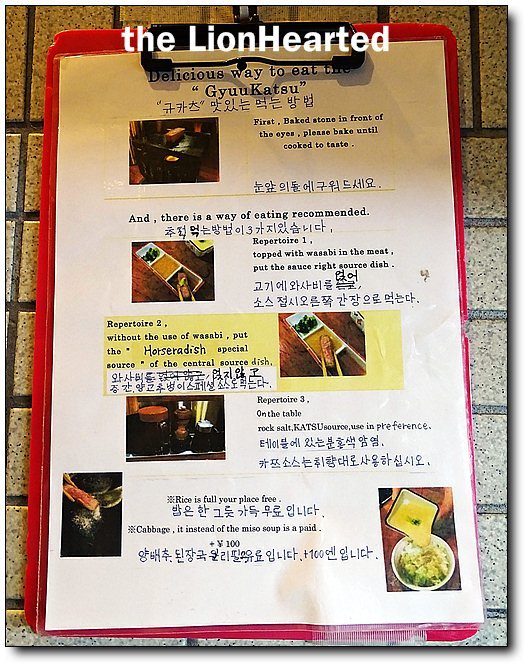 the LionHearted
Delicious way to eat the
“ GyuuKatsu”
“규카츠” 맛있는 먹는 방법
First , Baked stone in front of
the eyes , please bake until
cooked to taste .
눈앞의 돌에 구워드세요.
And , there is a way of eating recommended.
추천 먹는방법이 3가지있습니다,
Repertoire 1 ,
topped with wasabi in the meat ,
put the sauce right source dish .
고기에 와사비를 얹어
소스 접시오른쪽 간장으로 먹는다.
Repertoire 2 ,
without the use of wasabi , put
the “ Horseradish special
source ” of the central source dish.
와사비를 얹지않고
중간 양고추병이스페셜 소스도찍는다.
Repertoire 3 ,
On the table
rock salt,KATSUsource,use in preference.
테이블에 있는 분홍색 암염,
카쯔소스는 취향대로 사용하십시오,
※Rice is full your place free .
밥은 한 그릇 가득 무료 입니다.
※Cabbage , it instead of the miso soup is a paid .
+￥100
양배추, 된장국 리필유료입니다. +100엔 입니다.